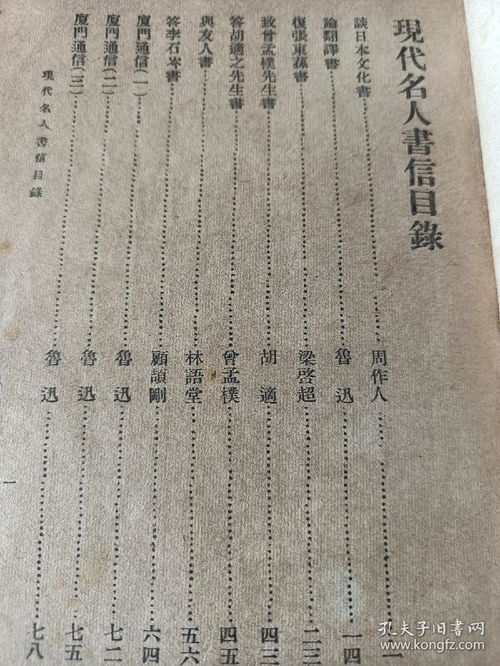 現代名人書信目錄
談日本文化書 周作人 一
論翻譯書 魯迅 一四
復張東蓀書 梁啓超 二三
致曾孟樸先生書 胡適 四三
答胡適之先生書 曾孟樸 四五
與友人書 林語堂 五六
答李石岑書 顧頡剛 六四
廈門通信(一) 魯迅 七二
廈門通信(二) 魯迅 七五
廈門通信(三) 魯迅 七八
現代名人書信目錄
一
孔夫子旧书网
kongfz.com